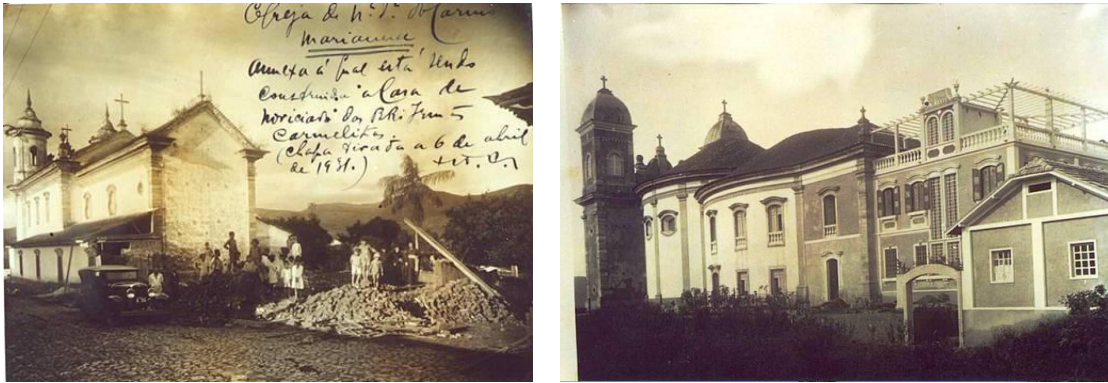 Igreja de N.ª S.ª do Carmo
Marianna
Annexa á qual está sendo
construida a Casa de
noviciado dos RR. Irmãos
Carmelitas.
(Chapa tirada a 6 de abril
de 1931.)